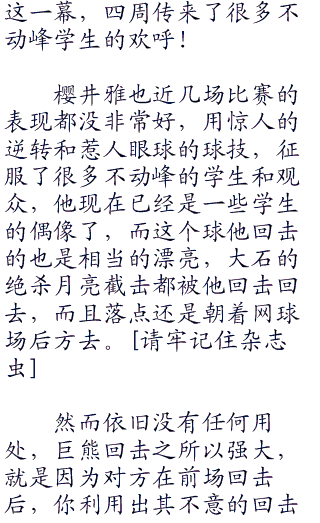 这一幕，四周传来了很多不
动峰学生的欢呼！
樱井雅也近几场比赛的
表现都没非常好，用惊人的
逆转和惹人眼球的球技，征
服了很多不动峰的学生和观
众，他现在已经是一些学生
的偶像了，而这个球他回击
的也是相当的漂亮，大石的
绝杀月亮截击都被他回击回
去，而且落点还是朝着网球
场后方去。[请牢记住杂志
虫]
然而依旧没有任何用
处，巨熊回击之所以强大，
就是因为对方在前场回击
后，你利用出其不意的回击